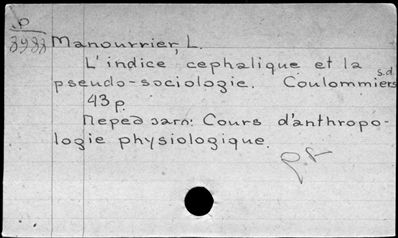 .p
3983
Manourrier, L.
L'indice cephalique et la
pseudo-sociologie. Coulommiers s.d.
43 p.
Перед загл: Cours d'anthropo-
logie physiologique.